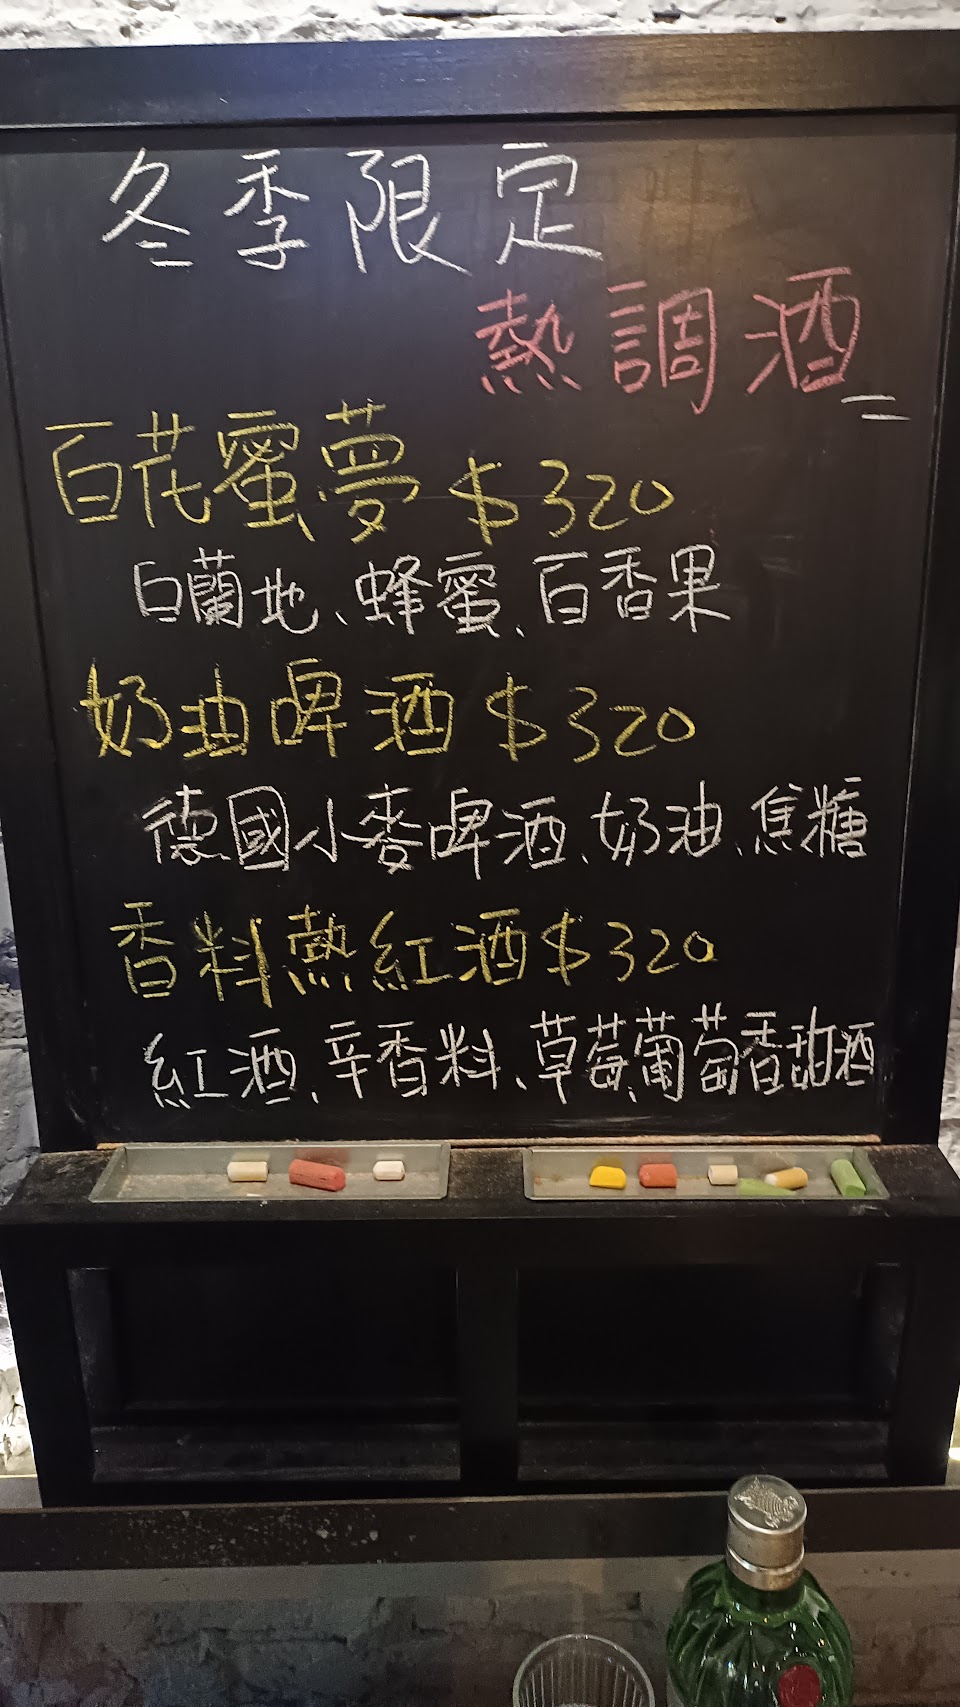 冬季限定
熱調酒
百花蜜夢 $320
白蘭地、蜂蜜、百香果
奶油啤酒 $320
德國小麥啤酒、奶油、焦糖
香料熱紅酒 $320
紅酒、辛香料、草莓、葡萄香甜酒